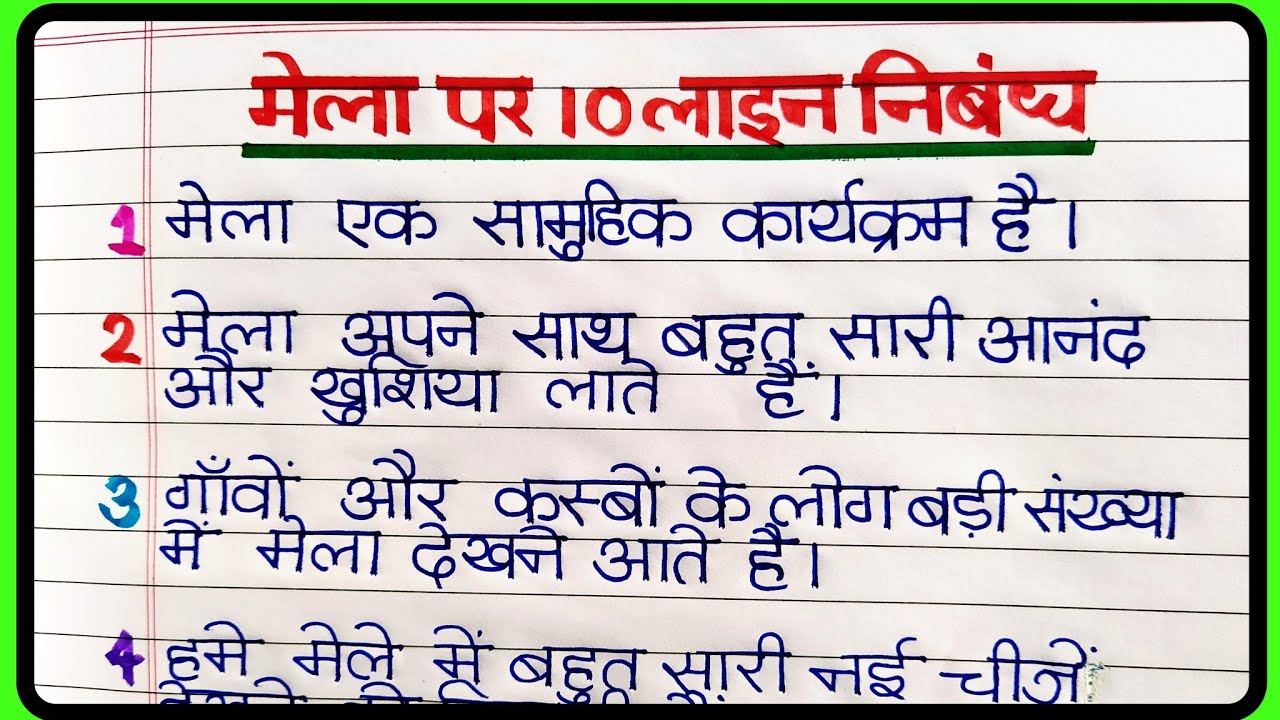 मेला पर 10 लाइन निबंध
1 मेला एक सामुहिक कार्यक्रम है।
2 मेला अपने साथ बहुत सारी आनंद
और खुशिया लाते हैं।
3 गाँवों और कस्बों के लोग बड़ी संख्या
में मेला देखने आते है।
4 हमे मेले में बहुत सारी नई चीजें